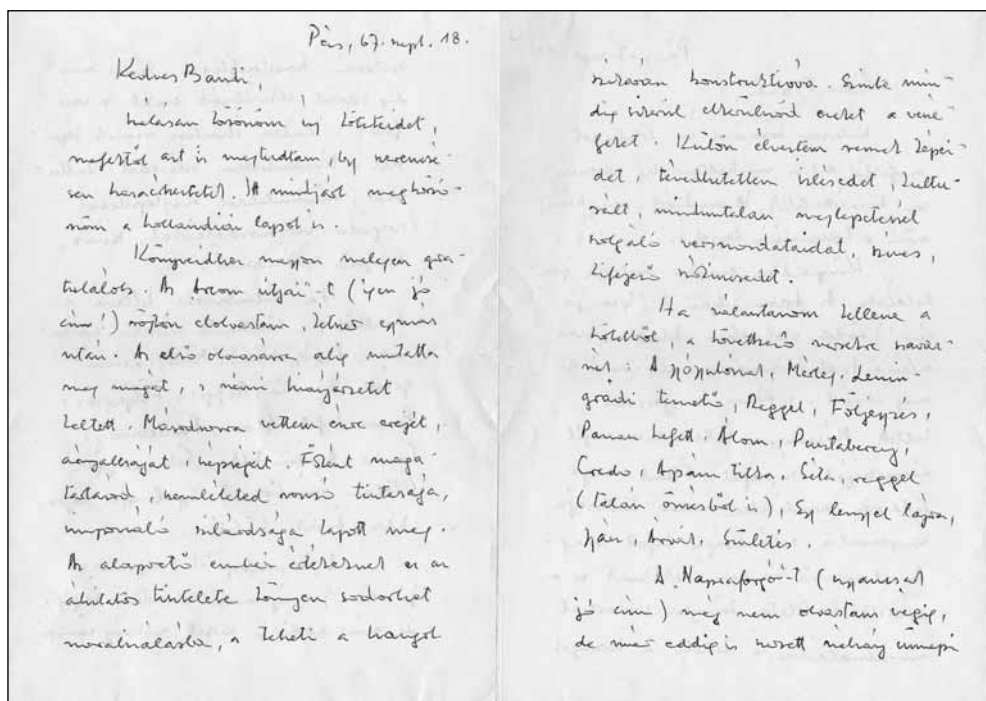 Pécs, 67. szept. 18.
Kedves Bandi,
hálásan köszönöm új köteteidet,
melyektől azt is megtudtam, hogy szerencsé-
sen hazaérkeztetek. Itt mindjárt megköszö-
nöm a hollandiai lapot is.
Könyveidhez nagyon melegen gra-
tulálok. Az Arcom útjai-t (igen jó
cím!) rögtön elolvastam, kétszer egymás
után. Az első olvasásra alig mutatta
meg magát, s némi hiányérzetet
keltett. Másodszorra vettem észre erejét,
árnyaltságát, szépségeit. Főként maga-
tartásod, szemléleted vonzó tisztasága,
imponáló szilárdsága kapott meg.
Az alapvető emberi érzéseknek ez az
áhítatos tisztelete könnyen sodorhat
moralizálásba, s teheti a hangot
szárazan konstruálttá. Szinte min-
dig sikerül elkerülnöd ezeket a veszé-
lyeket. Külön élveztem remek képei-
det, tévedhetetlen ízlésedet, kultu-
rált, minduntalan meglepetéssel
szolgáló versmondataidat, színes,
kifejező szókincsedet.
Ha választanom kellene a
kötetből, a következő versekre szavaz-
nék: A gyógyulónak, Mérleg, Lenin-
grádi temető, Reggel, Följegyzés,
Pannon, Álom,
Credo, Apám titka, Séta, reggel
(talán önzésből is), Egy lengyel lányra,
Nyár, Árvák, Születés.
A Napraforgó-t (ugyancsak
jó cím) még nem olvastam végig,
de már eddig is szerzett néhány ünnepi